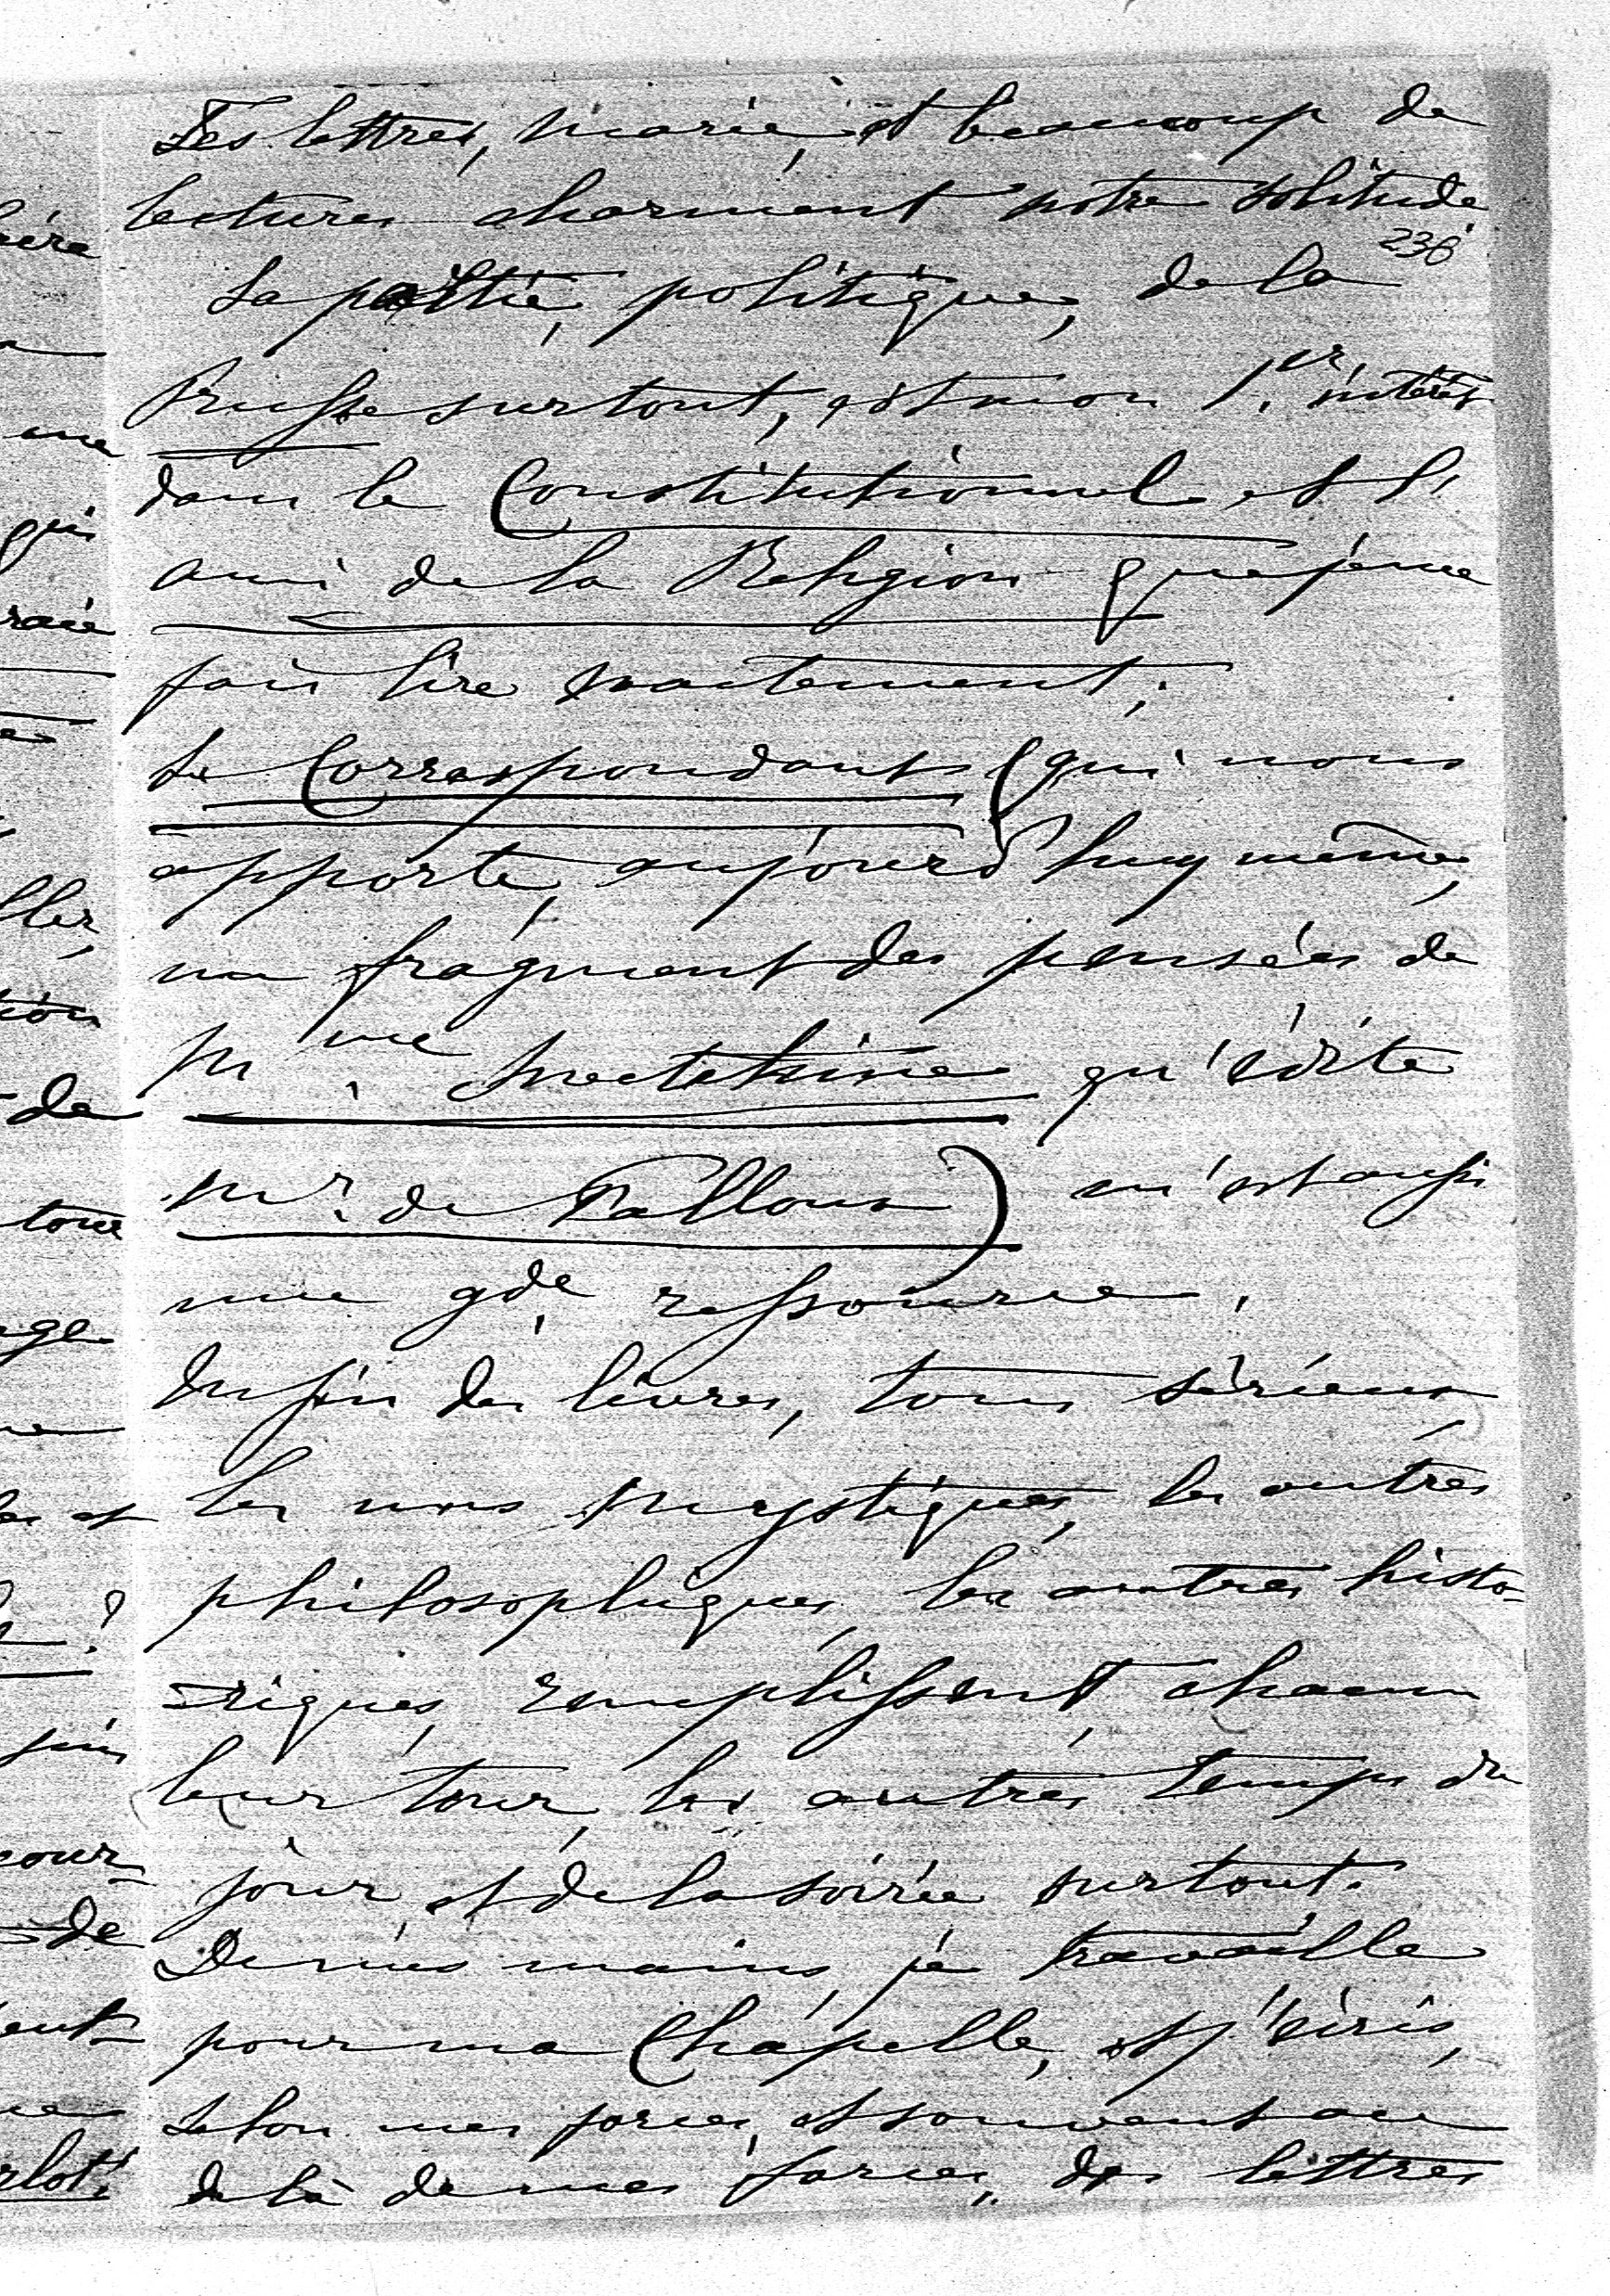 Les lettres, Marie, et beaucoup de
lectures charment notre solitude
238
La partie politique, de la
Prusse surtout, est mon 1.er intérêt
dans le Constitutionnel et l'
ami de la Religion que je me
fais lire exactement;
Le Correspondant (qui nous
apporte, aujourd'huy même,
un fragment des pensées de
Mme Swetchine qu'édite
Mr. de Falloux) m'est aussi
une gde ressource.
Enfin des livres, tous sérieux,
les uns mystiques, les autres
philosophiques, les autres histo=
=riques, remplissent, chacun
leur tour, les autres temps du
jour, et de la soirée surtout.
De mes mains, je travaille
pour ma Chapelle, et j'écris,
selon mes forces, et souvent au
delà de mes forces, des lettres